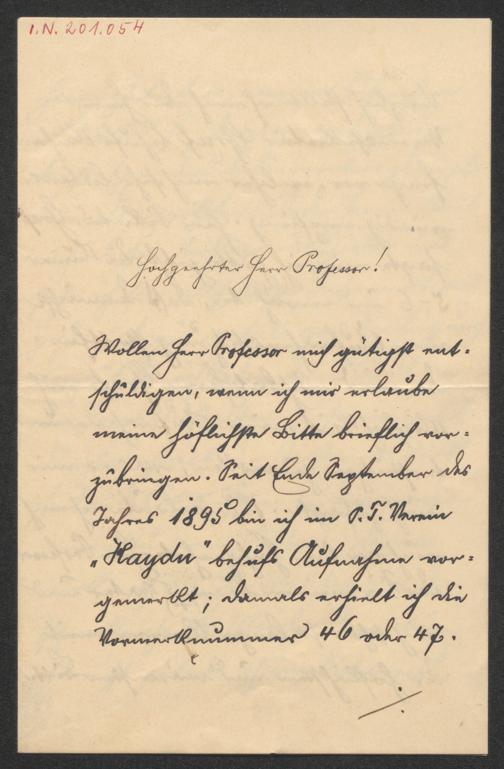 I.N. 201.054
Hochgeehrter Herr Professor!
Wollen Herr Professor mich gütigst ent-
schuldigen, wenn ich mir erlaube
meine höflichste Bitte brieflich vor-
zubringen. Seit Ende September des
Jahres 1895 bin ich im P.T. Verein
„Haydn" behufs Aufnahme vor-
gemerkt; damals erhielt ich die
Vormerknummer 46 oder 47.
./.